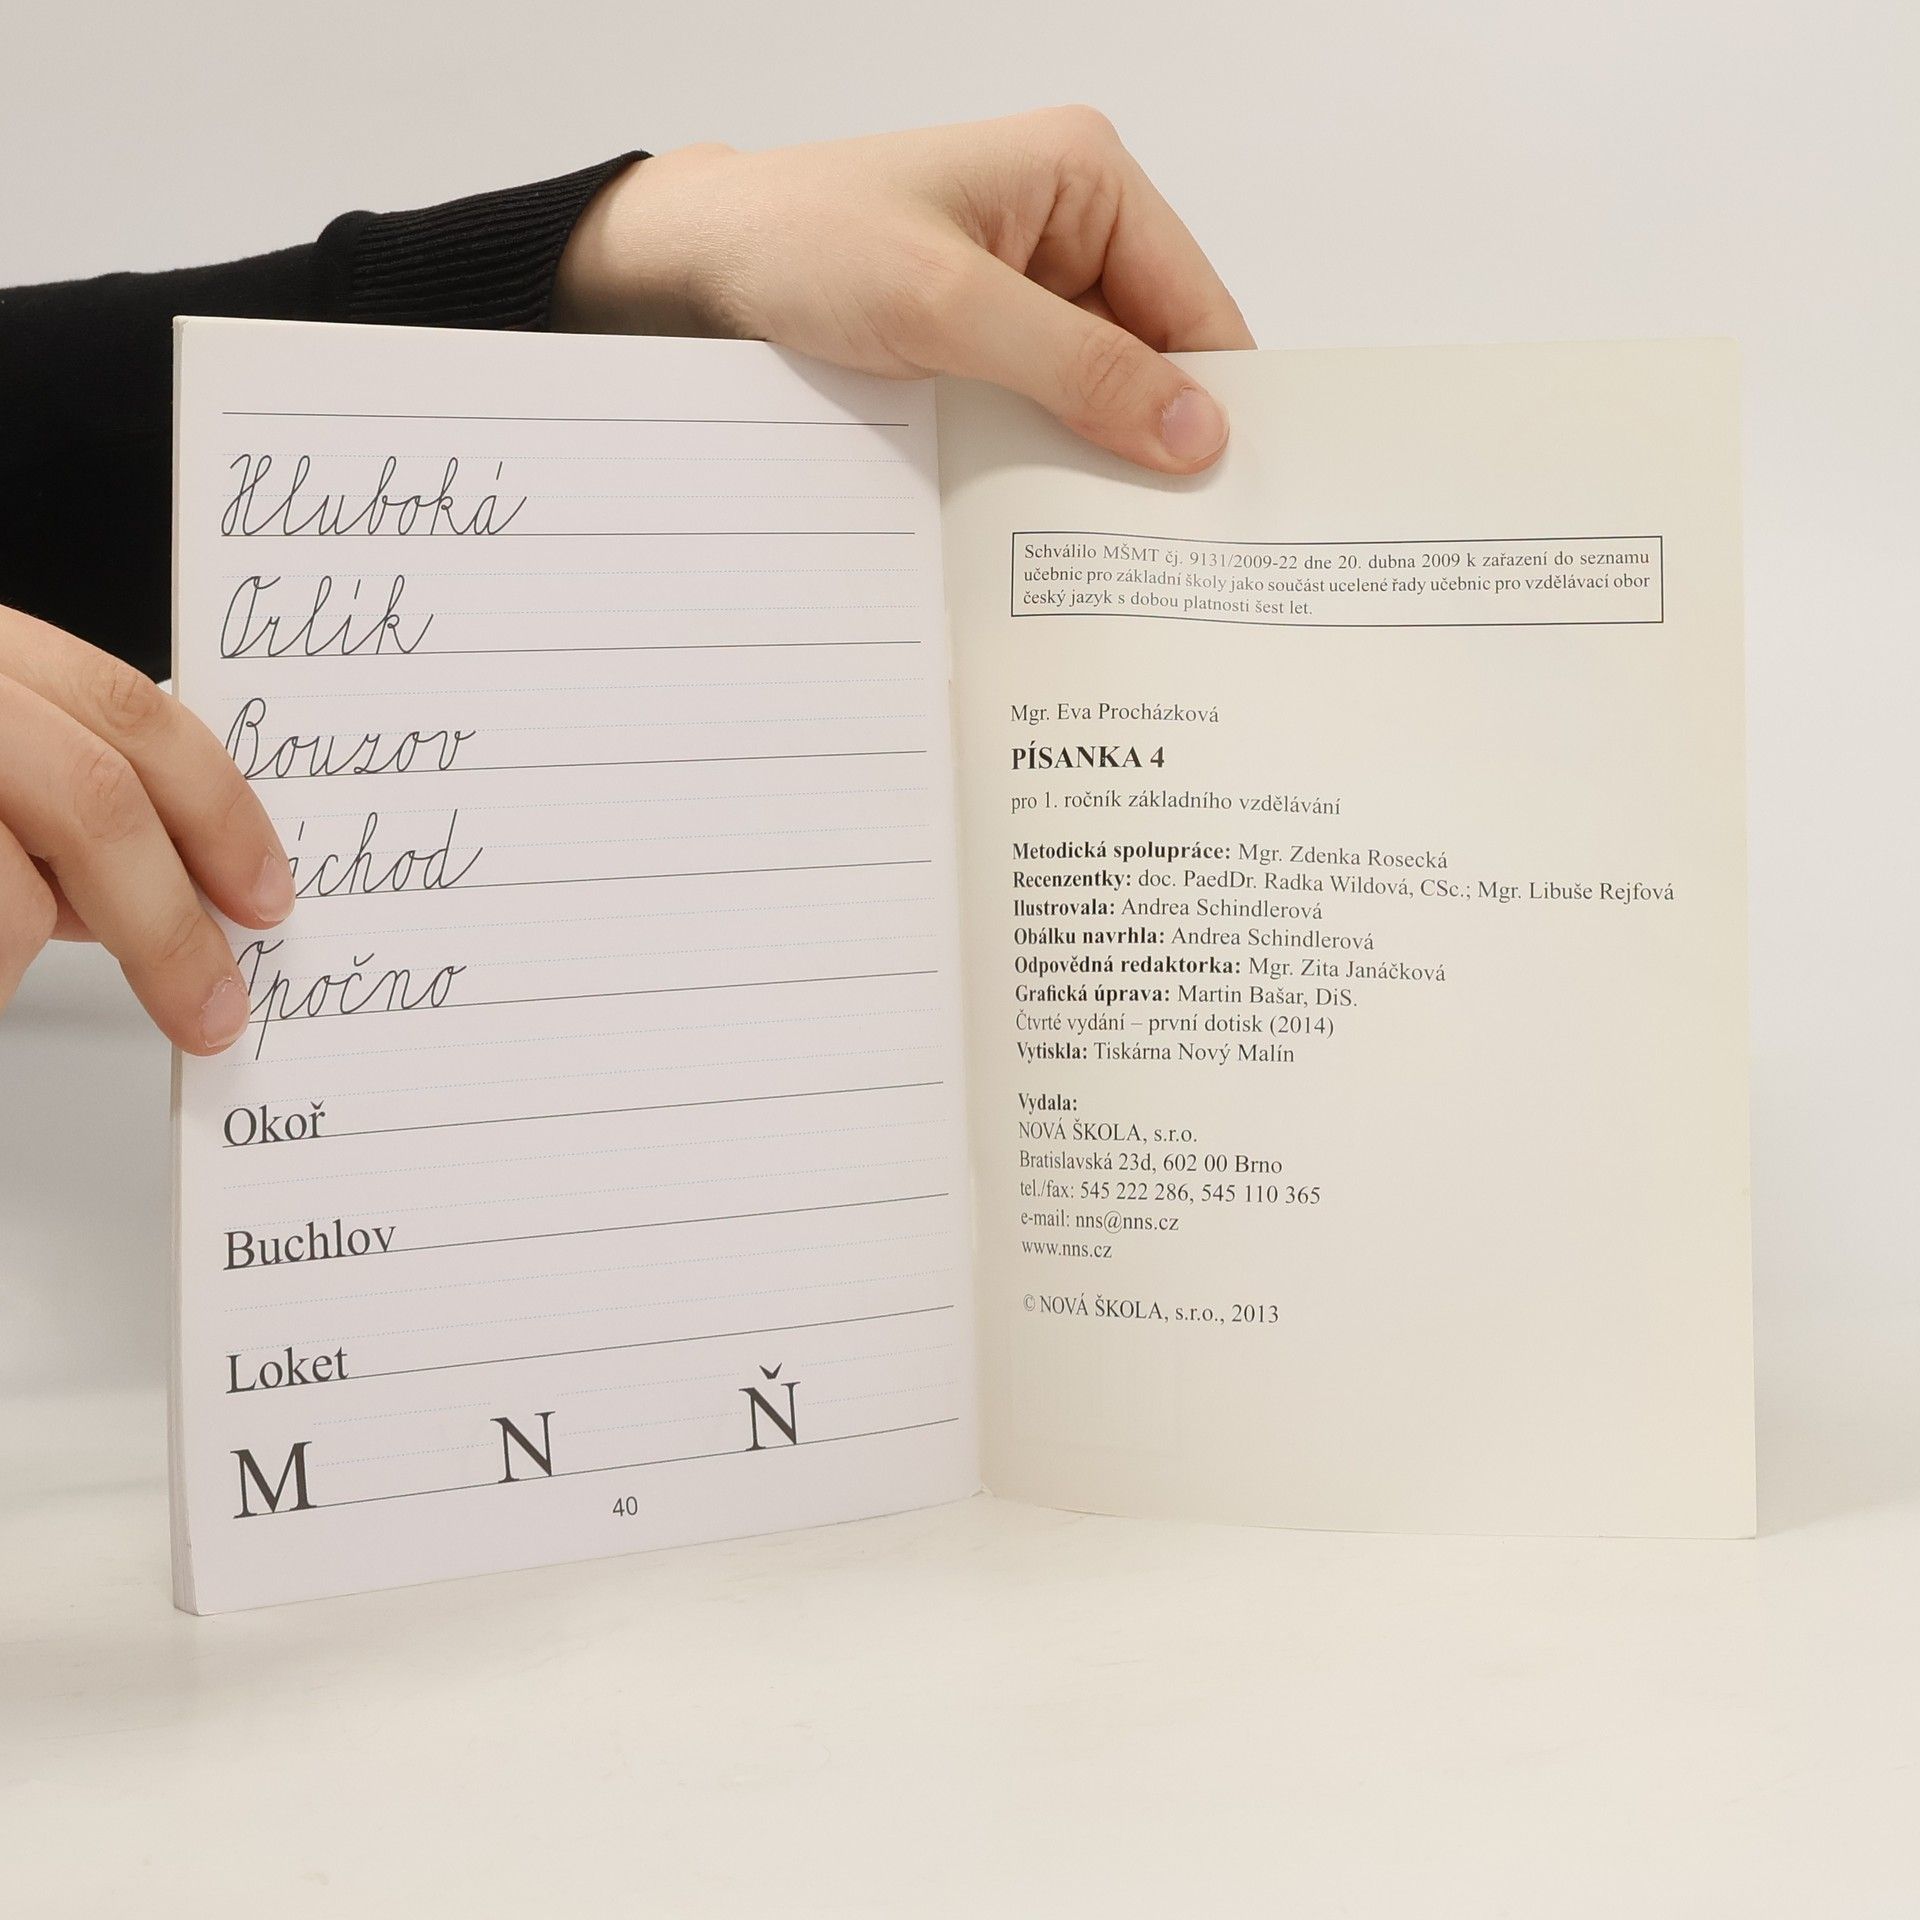 Hluboká
Orlík
Bouzov
áchod
Opočno
Okoř
Buchlov
Loket
M N Ň
40
Schválilo MŠMT čj. 9131/2009-22 dne 20. dubna 2009 k zařazení do seznamu
učebnic pro základní školy jako součást ucelené řady učebnic pro vzdělávací obor
český jazyk s dobou platnosti šest let.
Mgr. Eva Procházková
PÍSANKA 4
pro 1. ročník základního vzdělávání
Metodická spolupráce: Mgr. Zdenka Rosecká
Recenzentky: doc. PaedDr. Radka Wildová, CSc.; Mgr. Libuše Rejfová
Ilustrovala: Andrea Schindlerová
Obálku navrhla: Andrea Schindlerová
Odpovědná redaktorka: Mgr. Zita Janáčková
Grafická úprava: Martin Bašar, DiS.
Čtvrté vydání – první dotisk (2014)
Vytiskla: Tiskárna Nový Malín
Vydala:
NOVÁ ŠKOLA, s.r.o.
Bratislavská 23d, 602 00 Brno
tel./fax: 545 222 286, 545 110 365
e-mail: nns@nns.cz
www.nns.cz
© NOVÁ ŠKOLA, s.r.o., 2013